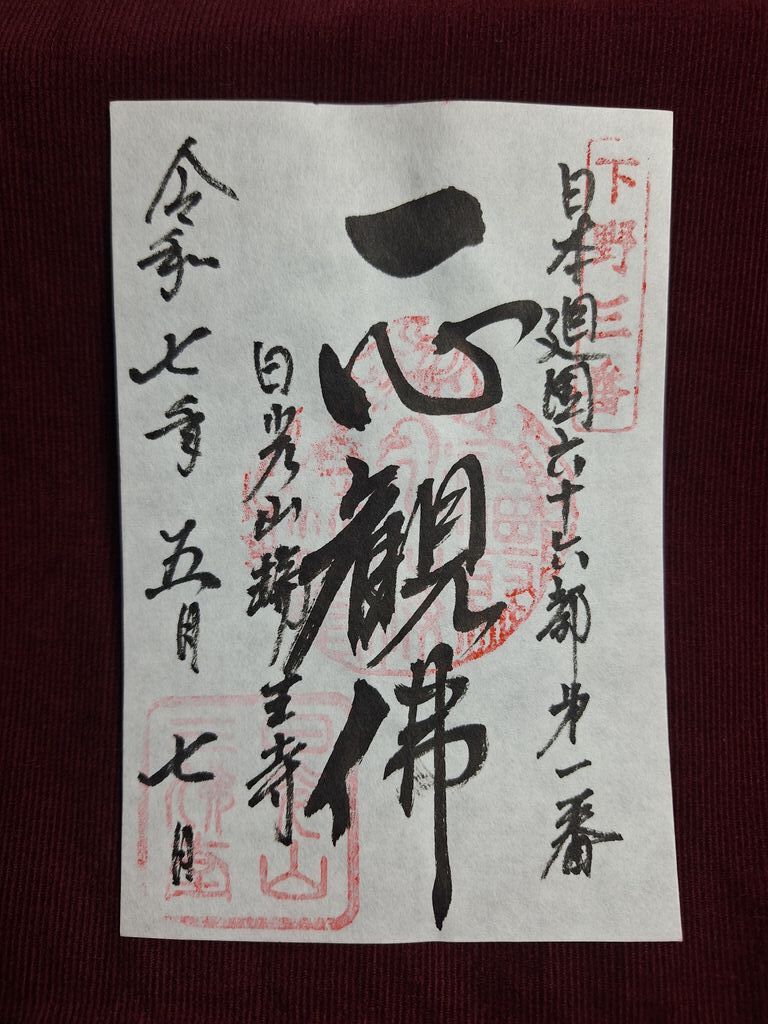 下野三番
日本廻国六十六部第一番
一心観佛
日光山輪王寺
令和七年五月七日
日光山
三佛堂